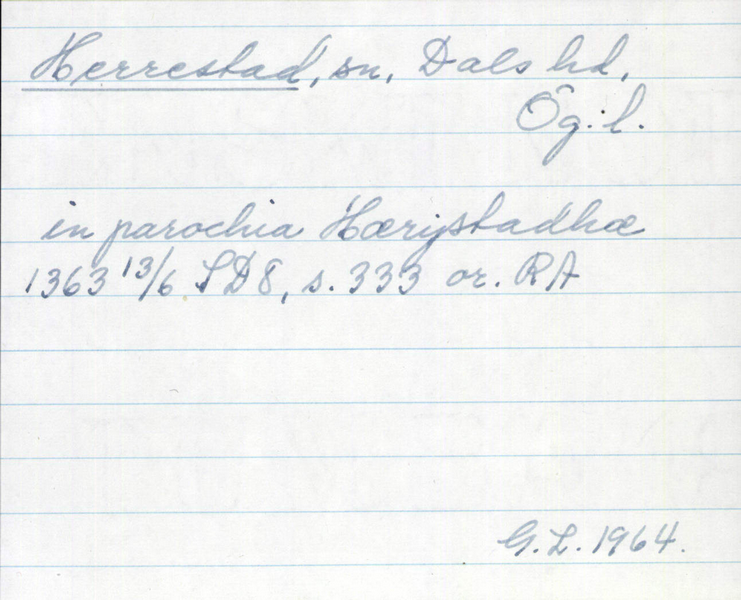 Herrestad, sn, Dals hd,
Ög. l.
in parochia Hærijstadhæ
1363 13/6 SD8, s. 333 or. RA
G.L. 1964.